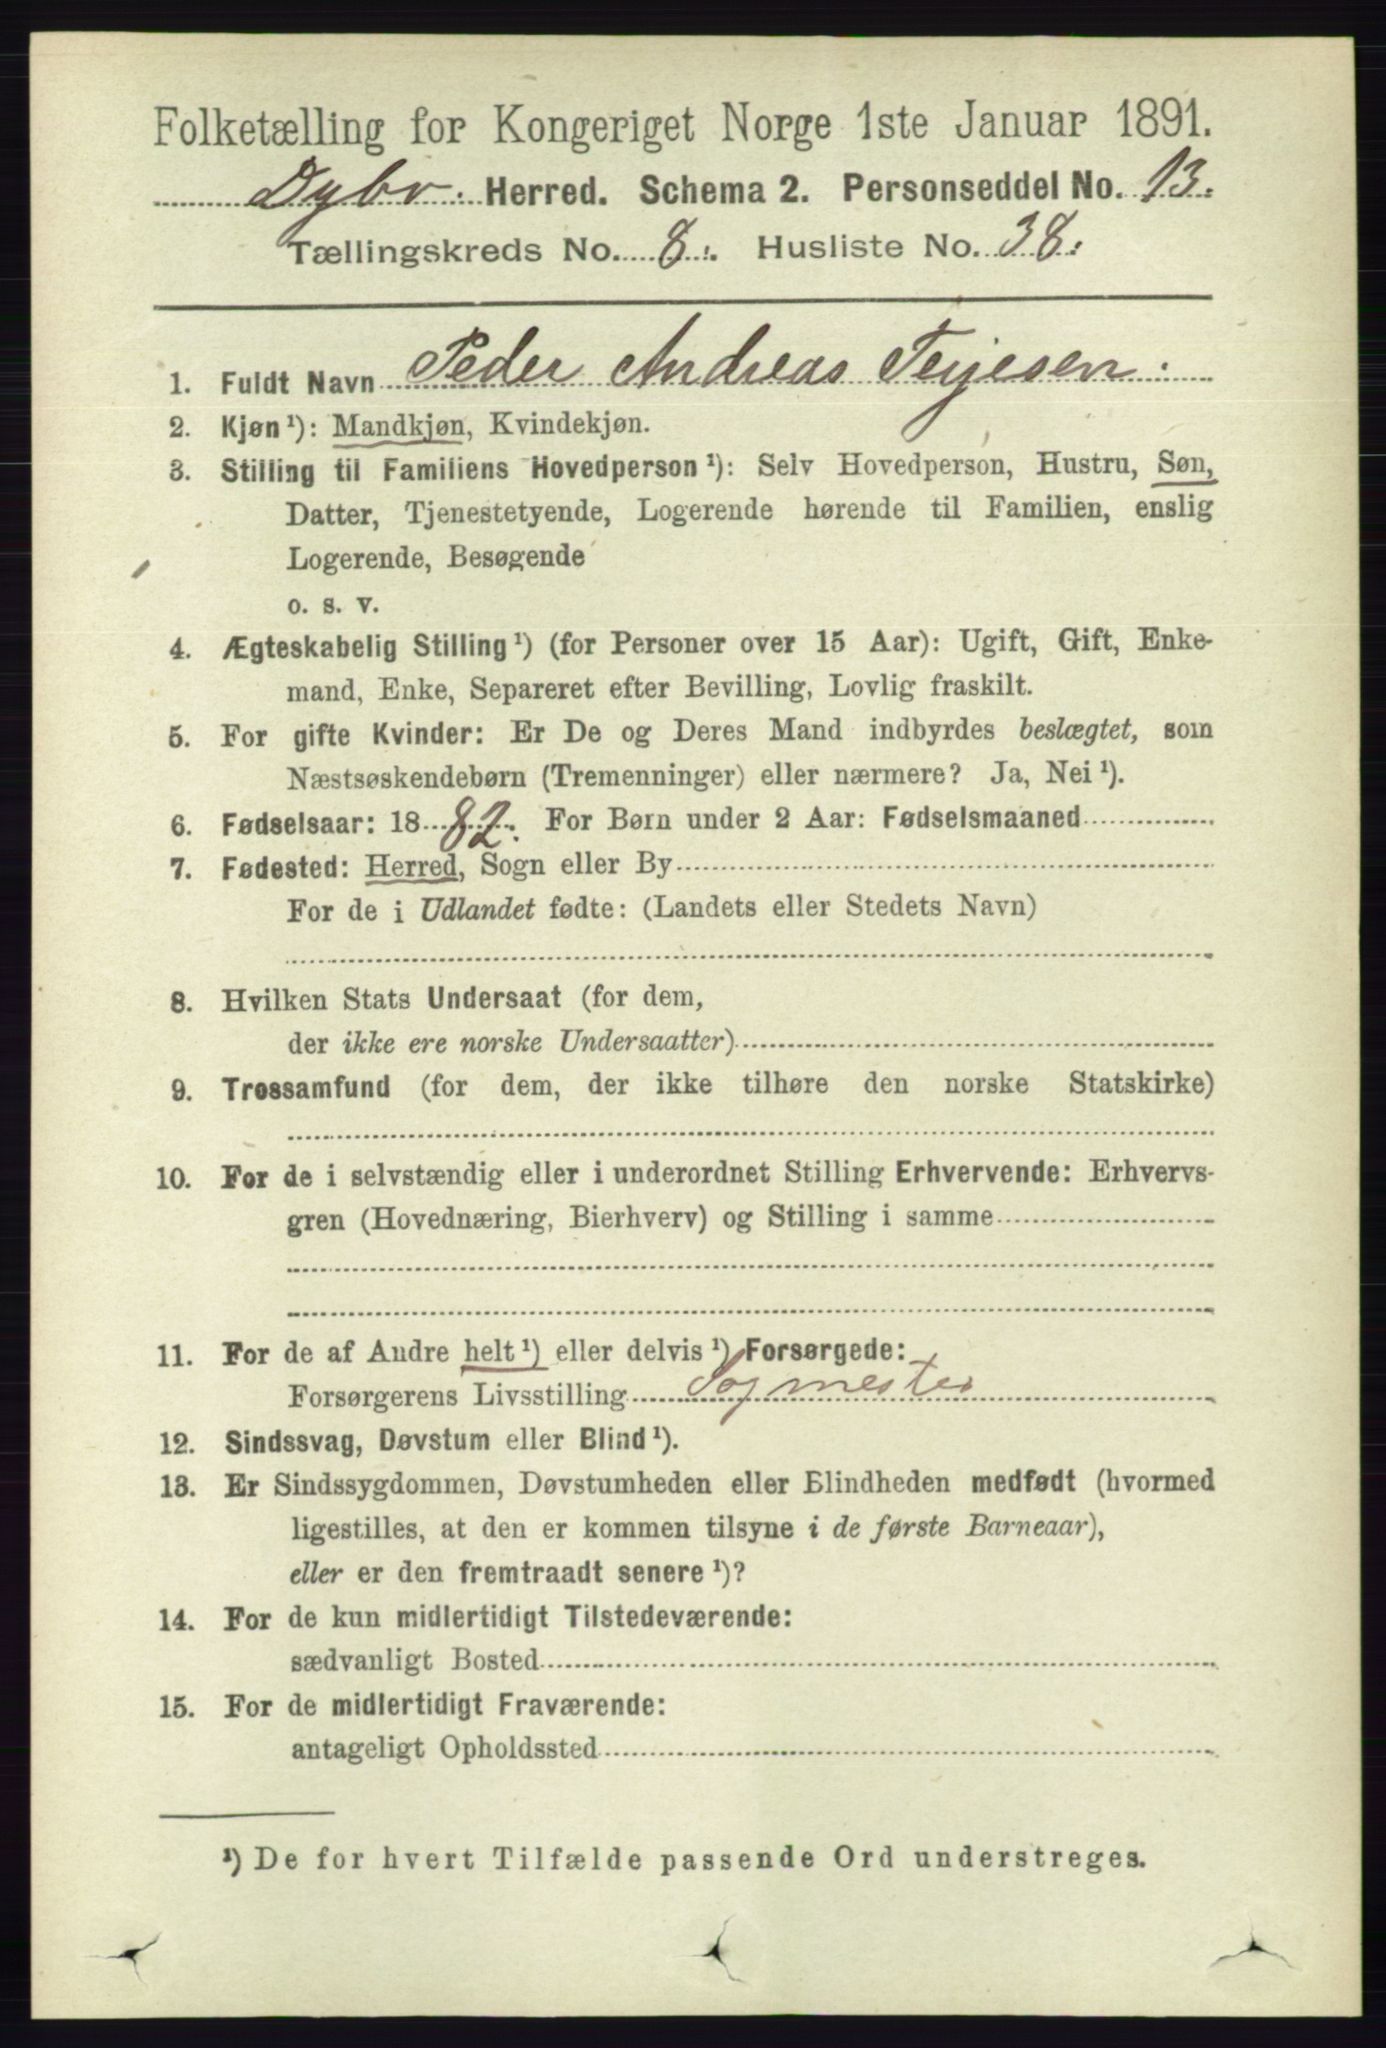 Folketælling for Kongeriget Norge 1ste Januar 1891.
Dybv. Herred. Schema 2. Personseddel No. 13.
Tællingskreds No. 8. Husliste No. 38.
1. Fuldt Navn Peder Andreas Terjesen.
2. Kjøn¹): Mandkjøn, Kvindekjøn.
3. Stilling til Familiens Hovedperson¹): Selv Hovedperson, Hustru, Søn,
Datter, Tjenestetyende, Logerende hørende til Familien, enslig
Logerende, Besøgende
o. s. v.
4. Ægteskabelig Stilling¹) (for Personer over 15 Aar): Ugift, Gift, Enke-
mand, Enke, Separeret efter Bevilling, Lovlig fraskilt.
5. For gifte Kvinder: Er De og Deres Mand indbyrdes beslægtet, som
Næstsøskendebørn (Tremenninger) eller nærmere? Ja, Nei¹).
6. Fødselsaar: 1882. For Børn under 2 Aar: Fødselsmaaned
7. Fødested: Herred, Sogn eller By
For de i Udlandet fødte: (Landets eller Stedets Navn)
8. Hvilken Stats Undersaat (for dem,
der ikke ere norske Undersaatter)
9. Trossamfund (for dem, der ikke tilhøre den norske Statskirke)
10. For de i selvstændig eller i underordnet Stilling Erhvervende: Erhvervs-
gren (Hovednæring, Bierhverv) og Stilling i samme
11. For de af Andre helt¹) eller delvis¹) Forsørgede:
Forsørgerens Livsstilling Sagmester
12. Sindssvag, Døvstum eller Blind¹).
13. Er Sindssygdommen, Døvstumheden eller Blindheden medfødt (hvormed
ligestilles, at den er kommen tilsyne i de første Barneaar),
eller er den fremtraadt senere¹)?
14. For de kun midlertidigt Tilstedeværende:
sædvanligt Bosted
15. For de midlertidigt Fraværende:
antageligt Opholdssted
¹) De for hvert Tilfælde passende Ord understreges.